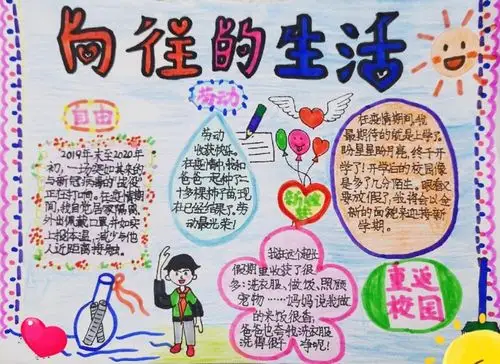 向往的生活
自由
2019年末至2020年
初,一场突如其来的
与新冠病毒的“战役”
正在打响。在疫情期
间,我自觉居家隔离,
外出佩戴口罩,并如实
上报体温,减少与他
人近距离接触。
劳动
劳动
收获快乐。
在疫情中,我和
爸爸一起种了二
十多棵种子苗,现
在已经结果了。劳
动最光荣!
在疫情期间,我
最期待的就是上学了,
盼星星盼月亮,终于开
学了!开学后的校园像
是多了几分陌生。眼看又
要放假了,我将会以全
新的面貌来迎接新
学期。
我在这个超长
假期里收获了很
多:洗衣服、做饭、照顾
宠物……妈妈说我做
的米饭很香,
爸爸也夸我洗衣服
洗得很干净呢!
重返
校园